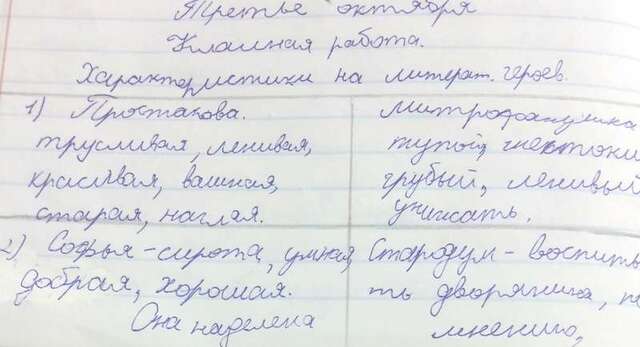 Третье октября
Классная работа.
Характеристики на литерат. героев.
1) Простакова.
трусливая, ленивая,
красивая, важная,
старая, наглая.
Митрофанушка
тупой,
грубый, ленивый
2) Софья - сирота, умная,
добрая, хорошая.
Она наделена
Стародум - воспить
ть дворянина,
мнению,